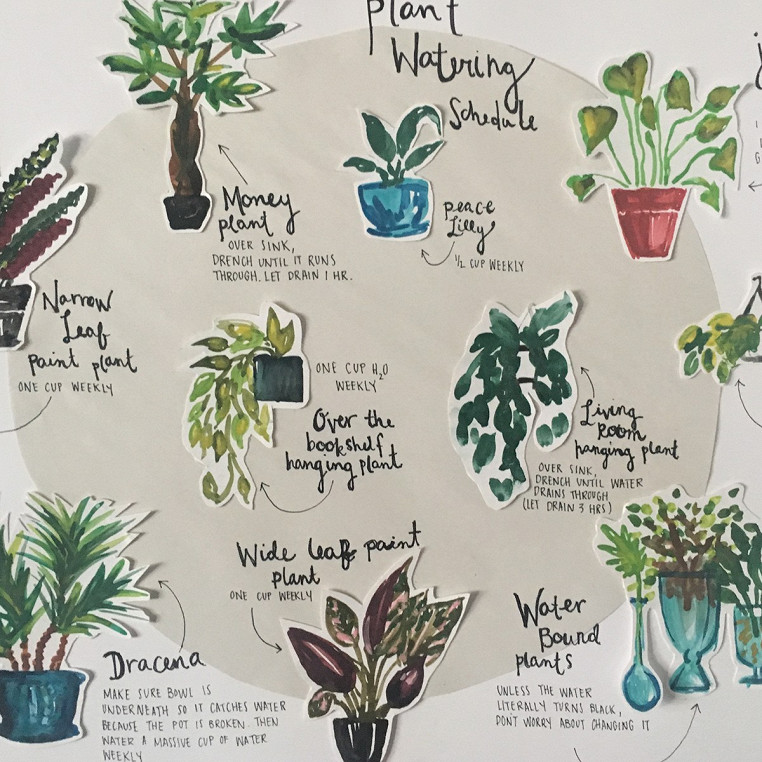 plant
Watering
Schedule
Money
plant
OVER SINK,
DRENCH UNTIL IT RUNS
THROUGH. LET DRAIN 1 HR.
peace
Lilly
1/2 CUP WEEKLY
Narrow
Leaf
paint plant
ONE CUP WEEKLY
ONE CUP H₂O
WEEKLY
Over the
bookshelf
hanging plant
Living
Room
hanging plant
OVER SINK,
DRENCH UNTIL WATER
DRAINS THROUGH
(LET DRAIN 3 HRS)
Wide leaf paint
plant
ONE CUP WEEKLY
Dracena
MAKE SURE BOWL IS
UNDERNEATH SO IT CATCHES WATER
BECAUSE THE POT IS BROKEN. THEN
WATER A MASSIVE CUP OF WATER
WEEKLY
Water
Bound
plants
UNLESS THE WATER
LITERALLY TURNS BLACK,
DON'T WORRY ABOUT CHANGING IT